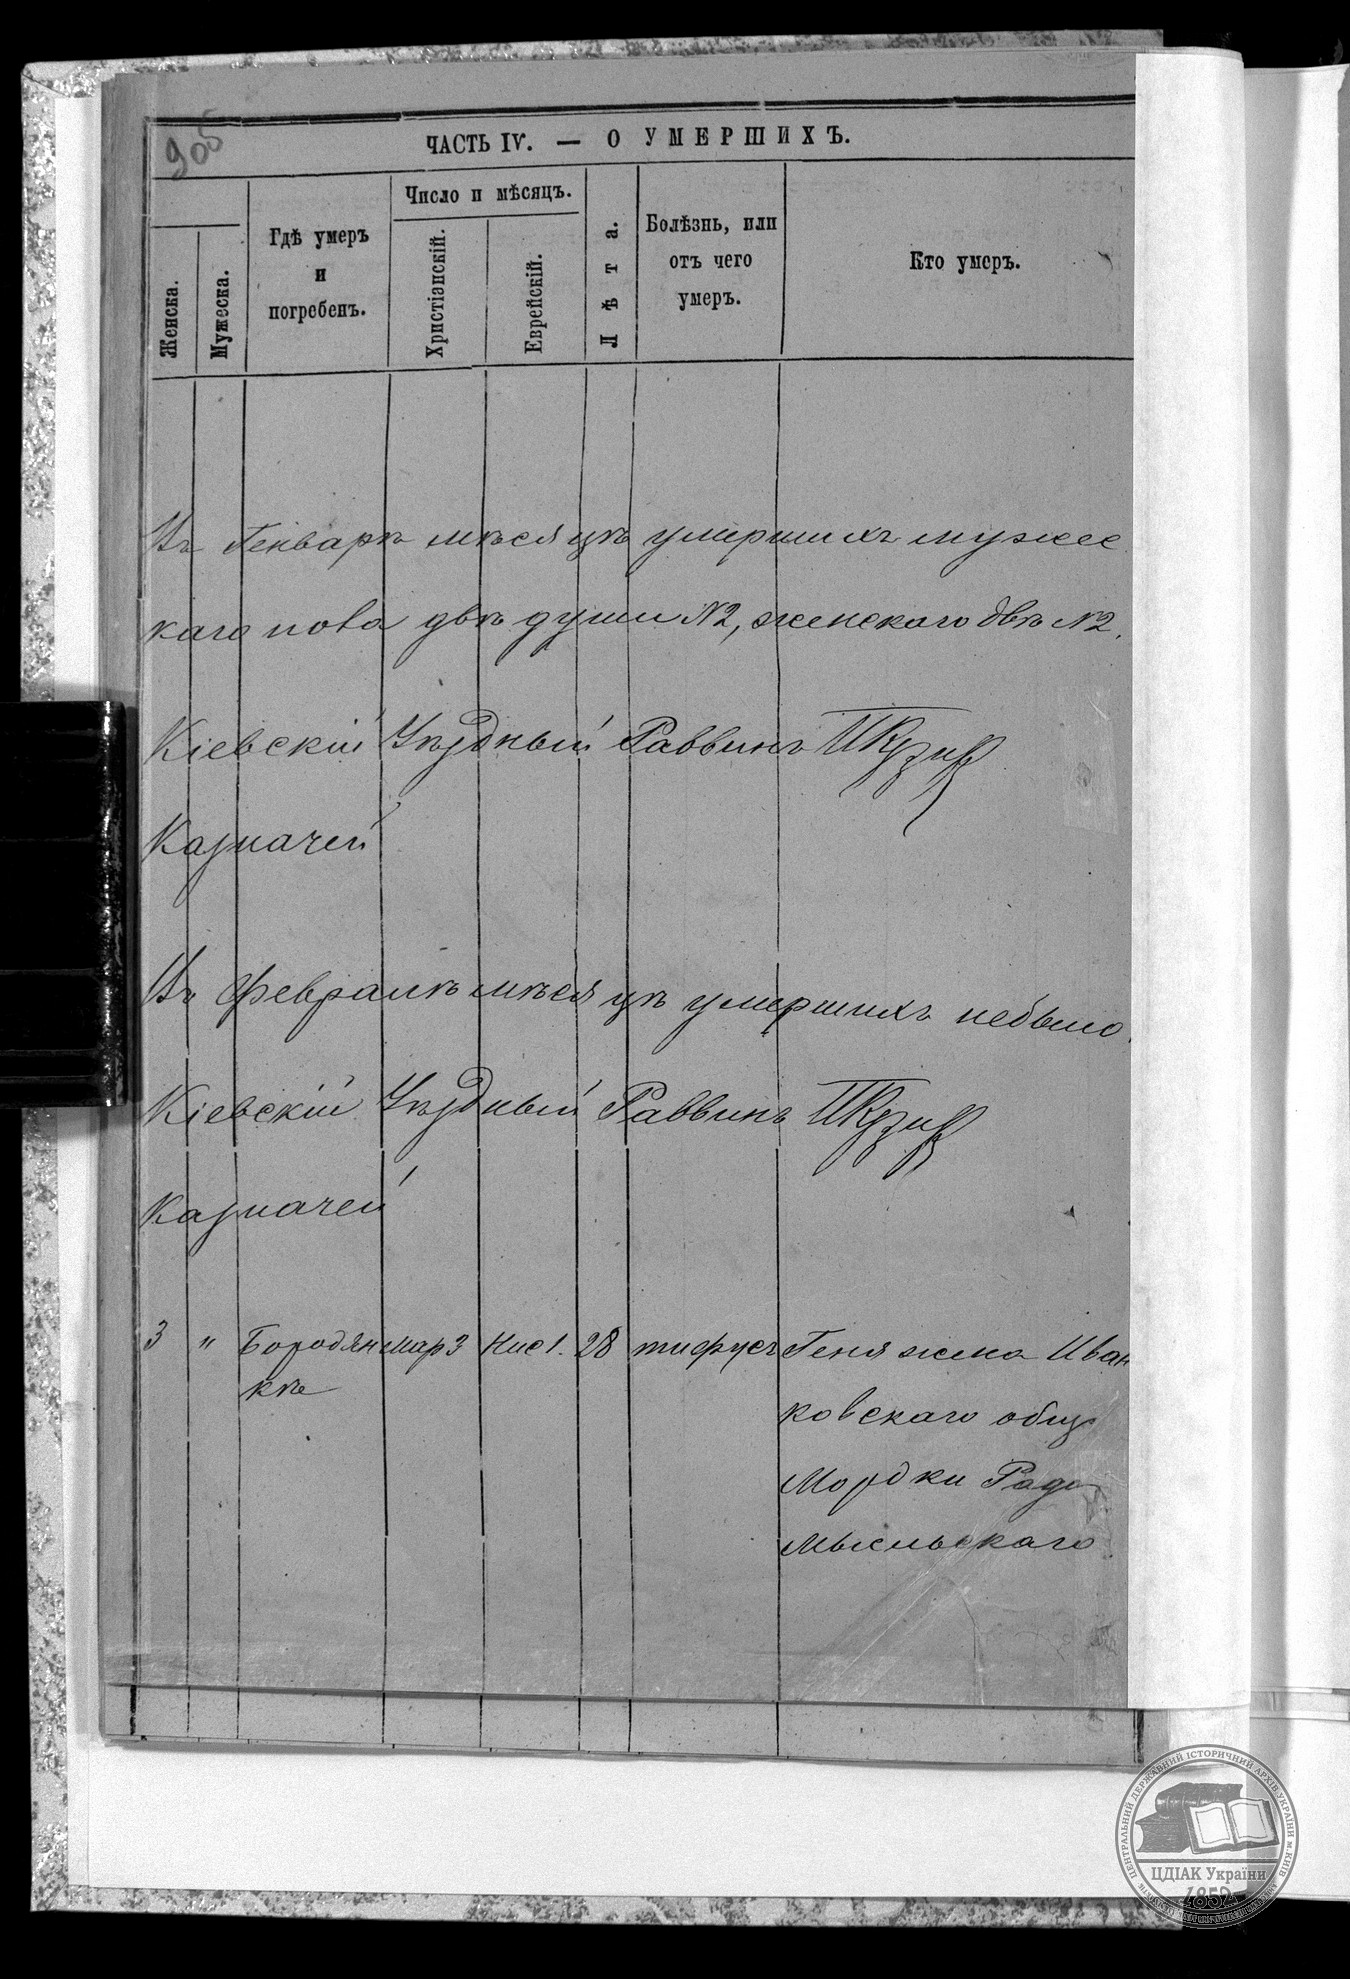 905
ЧАСТЬ IV. — О УМЕРШИХЪ.
Женска.
Мужеска.
Гдѣ умеръ
и
погребенъ.
Число и мѣсяцъ.
Христіанскій.
Еврейскій.
Лѣта.
Болѣзнь, или
отъ чего
умеръ.
Кто умеръ.
Въ Генварѣ мѣсяцѣ умершихъ мужес
каго пола двѣ души №2, женскаго двѣ №2.
Кіевскій Уѣздный Раввинъ
Казначей
Въ Февралѣ мѣсяцѣ умершихъ небыло.
Кіевскій Уѣздный Раввинъ
Казначей
3 " Бородян мар 3 Нис 1. 28 тифусъ Геня жена Иван
кѣ
ковскаго общ
Мордки Радо
мысльскаго
ЦЕНТРАЛЬНИЙ ДЕРЖАВНИЙ ІСТОРИЧНИЙ АРХІВ УКРАЇНИ м. КИЇВ
ЦДІАК України
1852